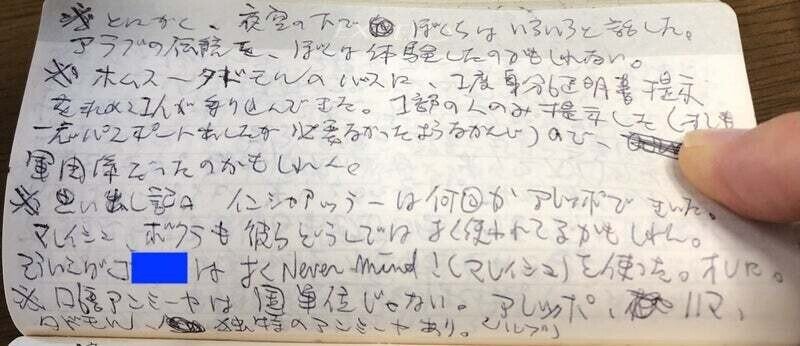 ※とにかく、夜空の下で ぼくらは いろいろと話した。
アラブの伝統を、ぼくは体験したのかもしれない。
※ホムスータドモルのバスに、1度身分証明書提示
を求める1人が乗り込んできた。1部の人のみ提示した(オレも
一応パスポート出したが必要なかったようなかんじ)ので、
軍関係だったのかもしれん。
※思い出し記 インシャアッラーは何回かアレッポできいた。
マレイシュ ボクラも彼らどうしではよく使われてるかもしれん。
そういえば J は よく Never mind!(マレイシュ)を使った。オレに。
※口語アンミーヤは国単位じゃない。アレッポ、ハマ、
タドモル、独特のアンミーヤあり。